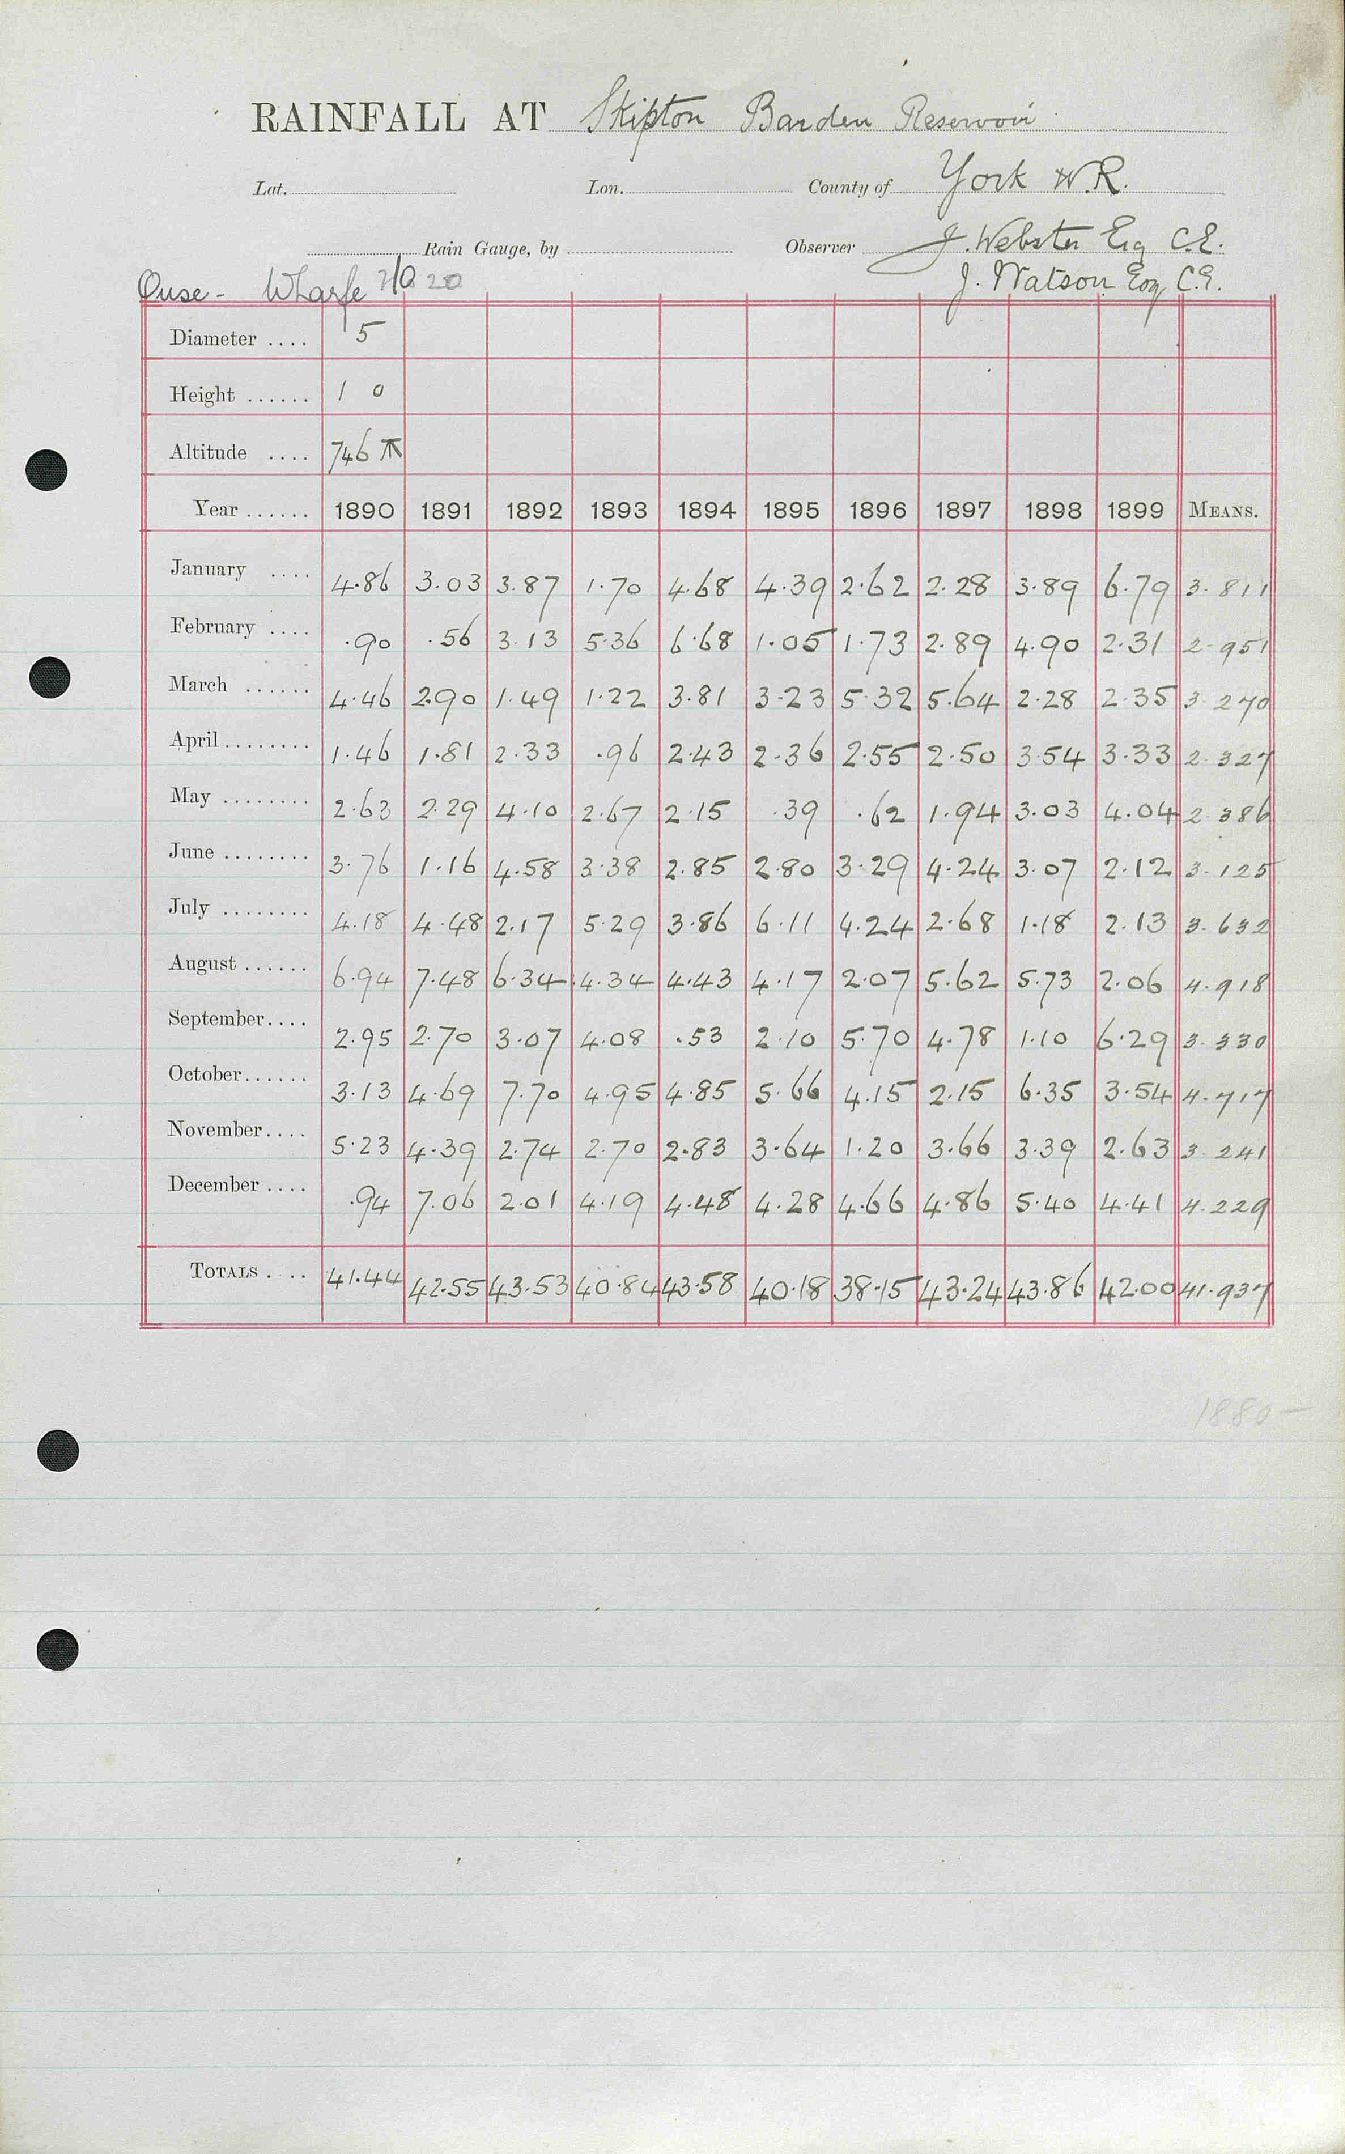 RAINFALL AT Skipton Barden Reservoir
Lat. Lon. County of York W.R.
Rain Gauge, by Observer J. Webster Esq C.E.
Ouse - Wharfe 20 J. Watson Esq C.E.
Diameter .... 5
Height ...... 1 0
Altitude .... 746
Year ...... 1890 1891 1892 1893 1894 1895 1896 1897 1898 1899 MEANS.
January .... 4.86 3.03 3.87 1.70 4.68 4.39 2.62 2.28 3.89 6.79 3.811
February .... .90 .56 3.13 5.36 6.68 1.05 1.73 2.89 4.90 2.31 2.951
March ...... 4.46 2.90 1.49 1.22 3.81 3.23 5.32 5.64 2.28 2.35 3.270
April ........ 1.46 1.81 2.33 .96 2.43 2.36 2.55 2.50 3.54 3.33 2.327
May ........ 2.63 2.29 4.10 2.67 2.15 .39 .62 1.94 3.03 4.04 2.386
June ........ 3.76 1.16 4.58 3.38 2.85 2.80 3.29 4.24 3.07 2.12 3.125
July ........ 4.18 4.48 2.17 5.29 3.86 6.11 4.24 2.68 1.18 2.13 3.632
August ...... 6.94 7.48 6.34 4.34 4.43 4.17 2.07 5.62 5.73 2.06 4.918
September .... 2.95 2.70 3.07 4.08 .53 2.10 5.70 4.78 1.10 6.29 3.330
October ...... 3.13 4.69 7.70 4.95 4.85 5.66 4.15 2.15 6.35 3.54 4.717
November .... 5.23 4.39 2.74 2.70 2.83 3.64 1.20 3.66 3.39 2.63 3.241
December .... .94 7.06 2.01 4.19 4.48 4.28 4.66 4.86 5.40 4.41 4.229
TOTALS .... 41.44 42.55 43.53 40.84 43.58 40.18 38.15 43.24 43.86 42.00 41.937
1880-